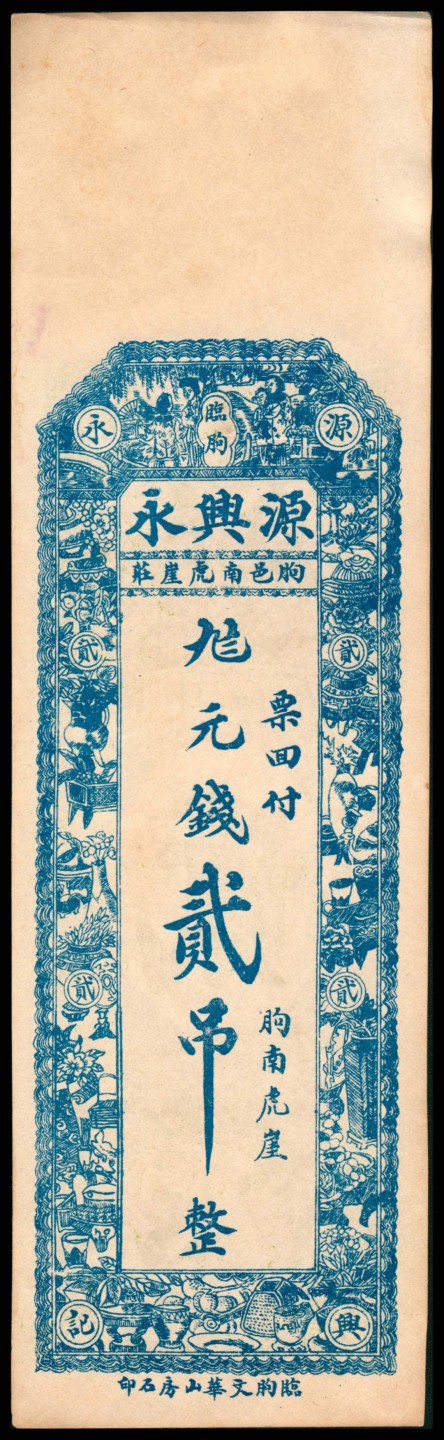 臨朐
源
永
源興永
朐邑南虎崖莊
票回付
朐南虎崖
元錢貳吊整
貳
貳
貳
貳
興
記
臨朐文華山房石印